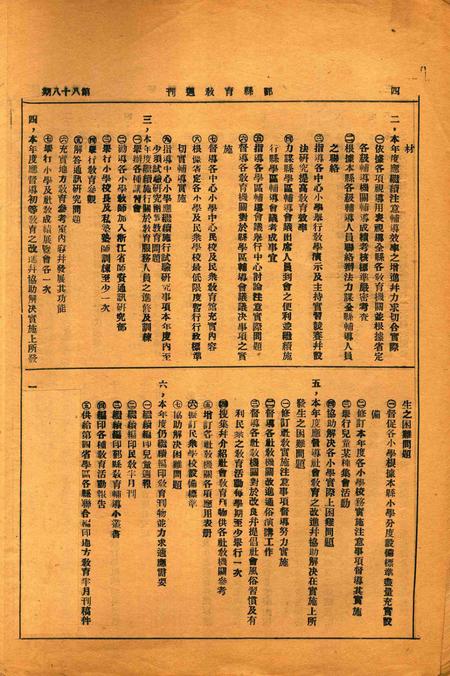 四
鄞縣教育週刊
第八十八期
材
二，本年度應繼續注意輔導效率之增進并力求切合實際
㊀依據各項視導用表視導全縣各教育機關並根據省定
各級輔導機關輔導成績考核標準嚴密考查
㊁根據本縣各級輔導人員聯絡辦法力謀全縣輔導人員
之聯絡
㊂指導各中心小學舉行教學演示及主持實習競賽并設
法研究提高教育效率
㊃力謀縣學區輔導會議出席人員到會之便利並繼續施
行縣學區輔導會議考成事宜
㊄指導各學區輔導會議舉行中心討論注意實際問題
㊅督導各教育機關對於縣學區輔導會議議決事項之實
施
㊆督導各中心小學中心民校及民衆教育館充實內容
㊇根據定各小學及民衆學校最低限度暫行行政標準
切實輔導實施
㊈指導中心小學應繼續施行試驗研究事項本年度內至
少須試驗研究兩種教育實際問題
三，本年度應繼續施行關於教育服務人員之進修及訓練
㊀舉辦各種講習會
㊁勸導各小學教師加入浙江省師資通訊研究部
㊂舉行小學校長及私塾塾師訓練至少一次
㊃舉行教育參觀
㊄解答通訊研究問題
㊅充實地方教育參考室內容并發展其功能
㊆舉行小學及社教成績展覽會各一次
四，本年度應督導初等教育之改進并協助解決實施上所發
生之困難問題
㊀督促各小學根據本縣小學分度設備標準盡量充實設
備
㊁修訂本年度各小學校務實施注意事項督導其實施
㊂舉行兒童某種集會活動
㊃協助解決各小學實際上困難問題
五，本年度應督導社會教育之改進并協助解決在實施上所
發生之困難問題
㊀修訂社教實施注意事項督導努力實施
㊁督導各社教機關改進通俗演講工作
㊂督導各社教機關對於改良并提倡社會風俗習慣及有
利民衆之教育活動每學期至少舉行一次
㊃搜集并介紹社會教育刊物供各社教機關參考
㊄增訂各社教機關各項應用表册
㊅擬訂民衆學校設備標準
㊆協助解決困難問題
六，本年度仍繼續編印教育刊物並力求適應需要
㊀繼續編印兒童週報
㊁繼續編印民教半月刊
㊂繼續編印鄞縣教育輔導小叢書
㊃編印各種教育活動報告
㊄供給第四省學區各縣聯合編印地方教育半月刊稿件
一